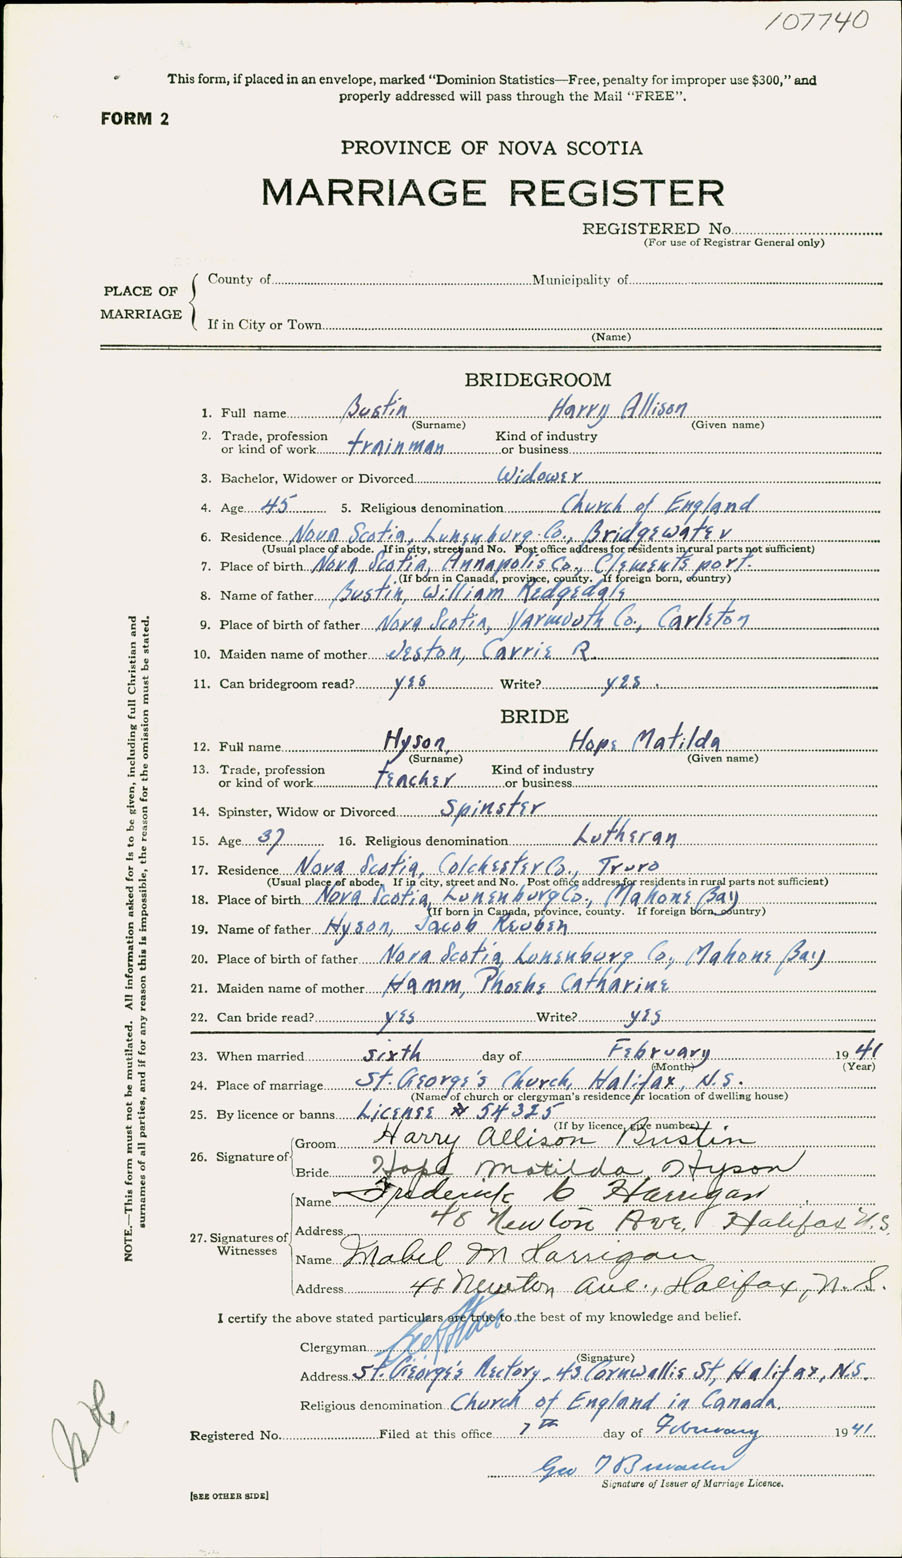 107740
This form, if placed in an envelope, marked “Dominion Statistics—Free, penalty for improper use $300,” and
properly addressed will pass through the Mail “FREE”.
FORM 2
PROVINCE OF NOVA SCOTIA
MARRIAGE REGISTER
REGISTERED No.
(For use of Registrar General only)
PLACE OF MARRIAGE
County of Municipality of
If in City or Town
(Name)
BRIDEGROOM
1. Full name Bustin Harry Allison
(Surname) (Given name)
2. Trade, profession or kind of work trainman Kind of industry or business
3. Bachelor, Widower or Divorced Widower
4. Age 45 5. Religious denomination Church of England
6. Residence Nova Scotia, Lunenburg Co., Bridgewater
(Usual place of abode. If in city, street and No. Post office address for residents in rural parts not sufficient)
7. Place of birth Nova Scotia, Annapolis Co., Clementsport.
(If born in Canada, province, county. If foreign born, country)
8. Name of father Bustin, William Redgedale
9. Place of birth of father Nova Scotia, Yarmouth Co., Carleton
10. Maiden name of mother Carrie R.
11. Can bridegroom read? yes Write? yes.
BRIDE
12. Full name Hyson, Hope Matilda
(Surname) (Given name)
13. Trade, profession or kind of work teacher Kind of industry or business
14. Spinster, Widow or Divorced Spinster
15. Age 37 16. Religious denomination Lutheran
17. Residence Nova Scotia, Colchester Co., Truro
(Usual place of abode. If in city, street and No. Post office address for residents in rural parts not sufficient)
18. Place of birth Nova Scotia, Lunenburg Co., Mahone Bay
(If born in Canada, province, county. If foreign born, country)
19. Name of father Hyson, Jacob Reuben
20. Place of birth of father Nova Scotia, Lunenburg Co., Mahone Bay
21. Maiden name of mother Hamm, Phoebe Catharine
22. Can bride read? yes Write? yes
23. When married sixth day of February 1941
(Month) (Year)
24. Place of marriage St. George's Church, Halifax, N.S.
(Name of church or clergyman's residence or location of dwelling house)
25. By licence or banns License # 54325
(If by licence, give number)
26. Signature of Groom Harry Allison Bustin
Bride Hope Matilda Hyson
27. Signatures of Witnesses
Name Frederick C Harrigan
Address 48 Newton Ave, Halifax N.S.
Name Mabel M Harrigan
Address 48 Newton Ave., Halifax, N.S.
I certify the above stated particulars are true to the best of my knowledge and belief.
Clergyman
(Signature)
Address St. George's Rectory, 43 Cornwallis St, Halifax, N.S.
Religious denomination Church of England in Canada
Registered No. Filed at this office 7th day of February 1941
Geo
Signature of Issuer of Marriage Licence.
[SEE OTHER SIDE]
NOTE.—This form must not be mutilated. All information asked for is to be given, including full Christian and
surnames of all parties, and if for any reason this is impossible, the reason for the omission must be stated.